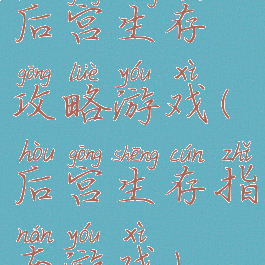 后宫生存
gōng lüè yóu xì
攻略游戏(
hòu gōng shēng cún zhǐ
后宫生存指
nán yóu xì
南游戏)